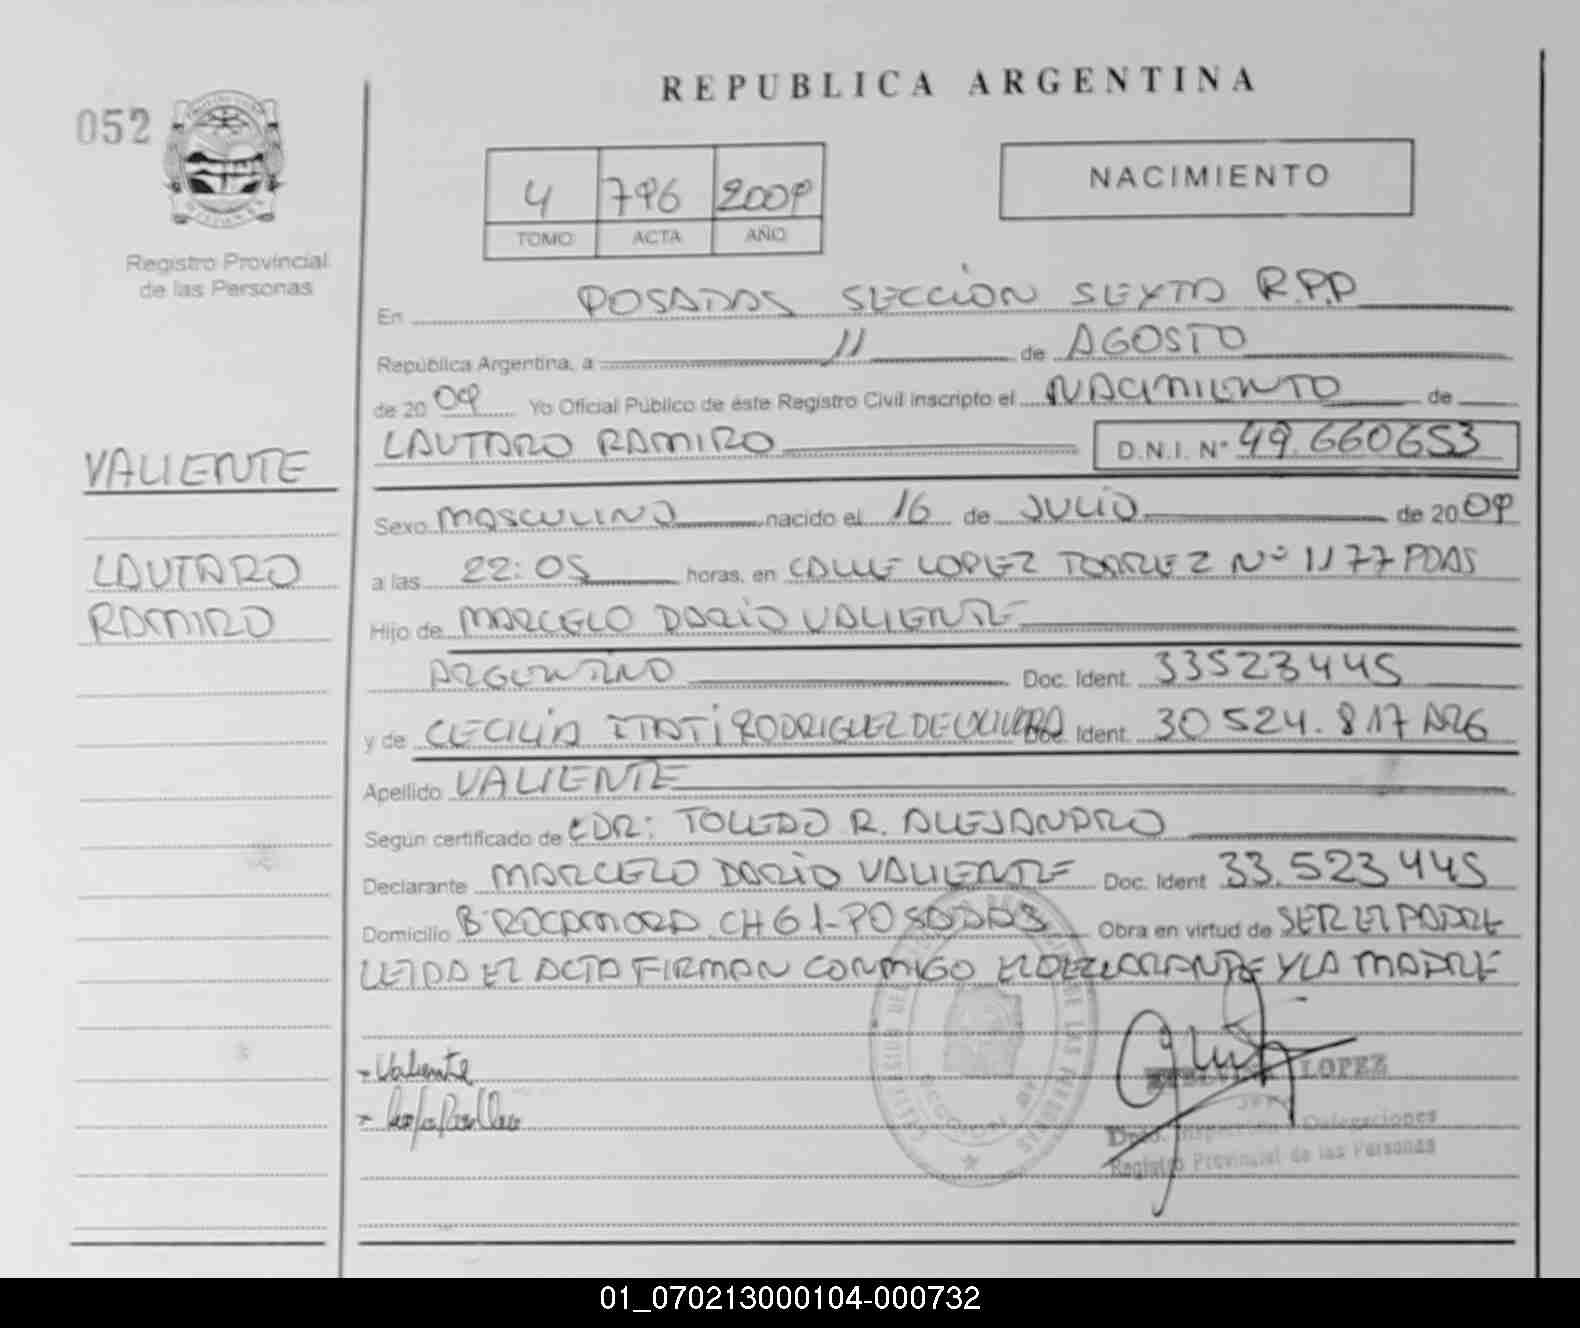 REPUBLICA ARGENTINA
052
NACIMIENTO
4 796 2009
TOMO ACTA AÑO
Registro Provincial
de las Personas
En POSADAS SECCION SEXTO R.P.P
República Argentina, a 11 de AGOSTO
de 2009 Yo Oficial Público de éste Registro Civil inscripto el NACIMIENTO de
VALIENTE
LAUTARO RAMIRO D.N.I. N° 49.660653
Sexo MASCULINO nacido el 16 de JULIO de 2009
LAUTARO
a las 22:05 horas, en CALLE LOPEZ TORREZ N° 1177 PDAS
RAMIRO
Hijo de MARCELO DARIO VALIENTE
ARGENTINO Doc. Ident. 33523445
y de CECILIA ITATI RODRIGUEZ DE Doc. Ident. 30524.817 ARG
Apellido VALIENTE
Según certificado de DR: TOLEDO R. ALEJANDRO
Declarante MARCELO DARIO VALIENTE Doc. Ident 33.523445
Domicilio B ROCAMORA CH 61-POSADAS Obra en virtud de SER EL PADRE
LEIDA EL ACTA FIRMAN CONMIGO EL DECLARANTE Y LA MADRE
Valiente
LOPEZ
JEFE
Dpto. Inspección Delegaciones
Registro Provincial de las Personas
01_070213000104-000732